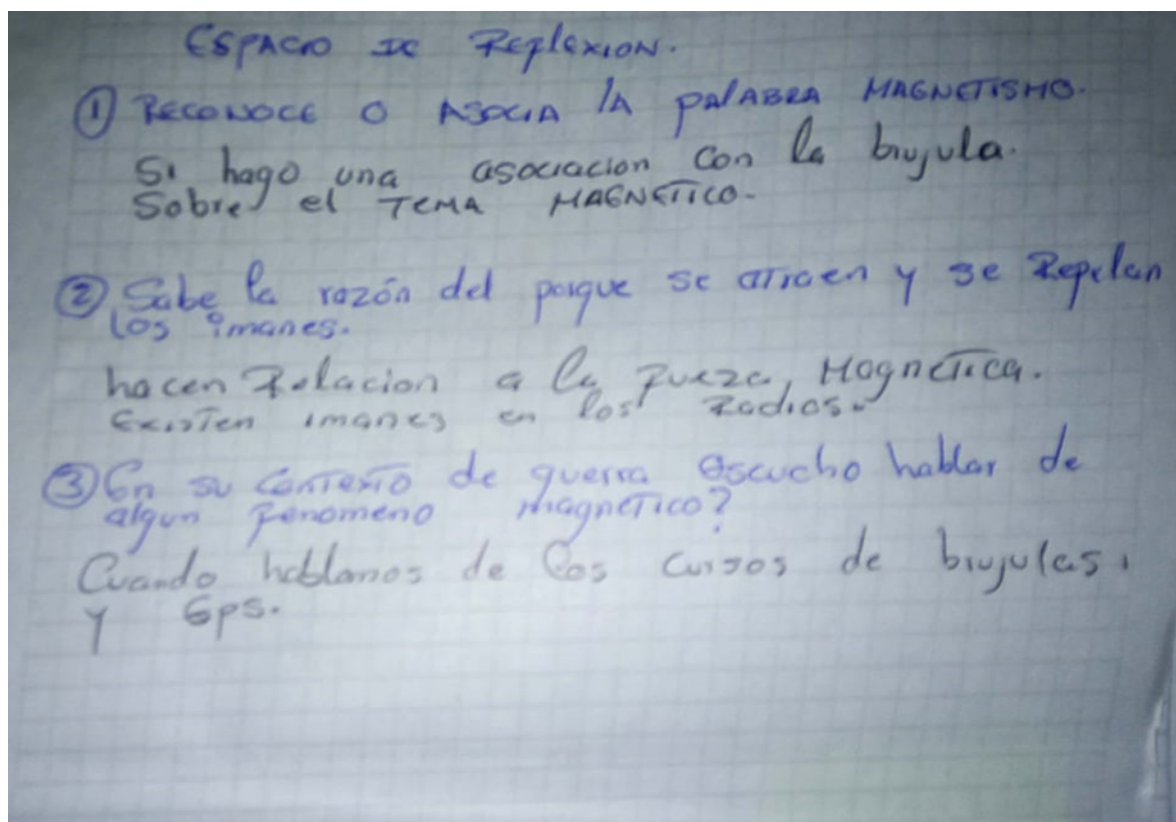 ESPACIO DE REFLEXION.
① RECONOCE O ASOCIA LA PALABRA MAGNETISMO.
Si hago una asociacion con la brujula.
Sobre el TEMA MAGNETICO.
② Sabe la razón del porque se atraen y se Repelan
los imanes.
hacen Relacion a la fuerza, Magnetica.
Existen imanes en los Radios.
③ En su contexto de guerra escucho hablar de
algun fenomeno magnetico?
Cuando hablamos de los cursos de brujulas,
y Gps.